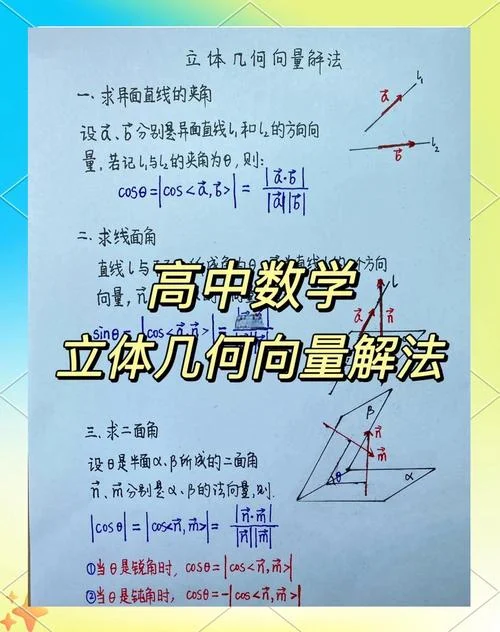 立体几何向量解法
一、求异面直线的夹角
设a⃗、b⃗分别是异面直线l₁和l₂的方向向
量,若记l₁与l₂的夹角为θ,则:
cosθ=|cos<a⃗,b⃗>|=|a⃗·b⃗|/|a⃗||b⃗|
a⃗
l₁
b⃗
l₂
二、求线面角
直线l与
方向
向量,n⃗
sinθ=|cos<a⃗,n⃗>|=
a⃗
n⃗
l
高中数学
立体几何向量解法
三、求二面角
设θ是半面α、β所成的二面角
n⃗、m⃗分别是α、β的法向量,则
|cosθ|=|cos<n⃗,m⃗>|=|n⃗·m⃗|/|n⃗||m⃗|
①当θ是锐角时,cosθ=|cos<n⃗,m⃗>|
②当θ是钝角时,cosθ=-|cos<n⃗,m⃗>|
β
n⃗
m⃗
θ
α